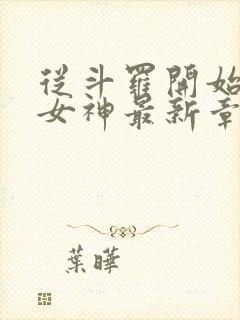 從斗羅開始
女神最新章
葉曄